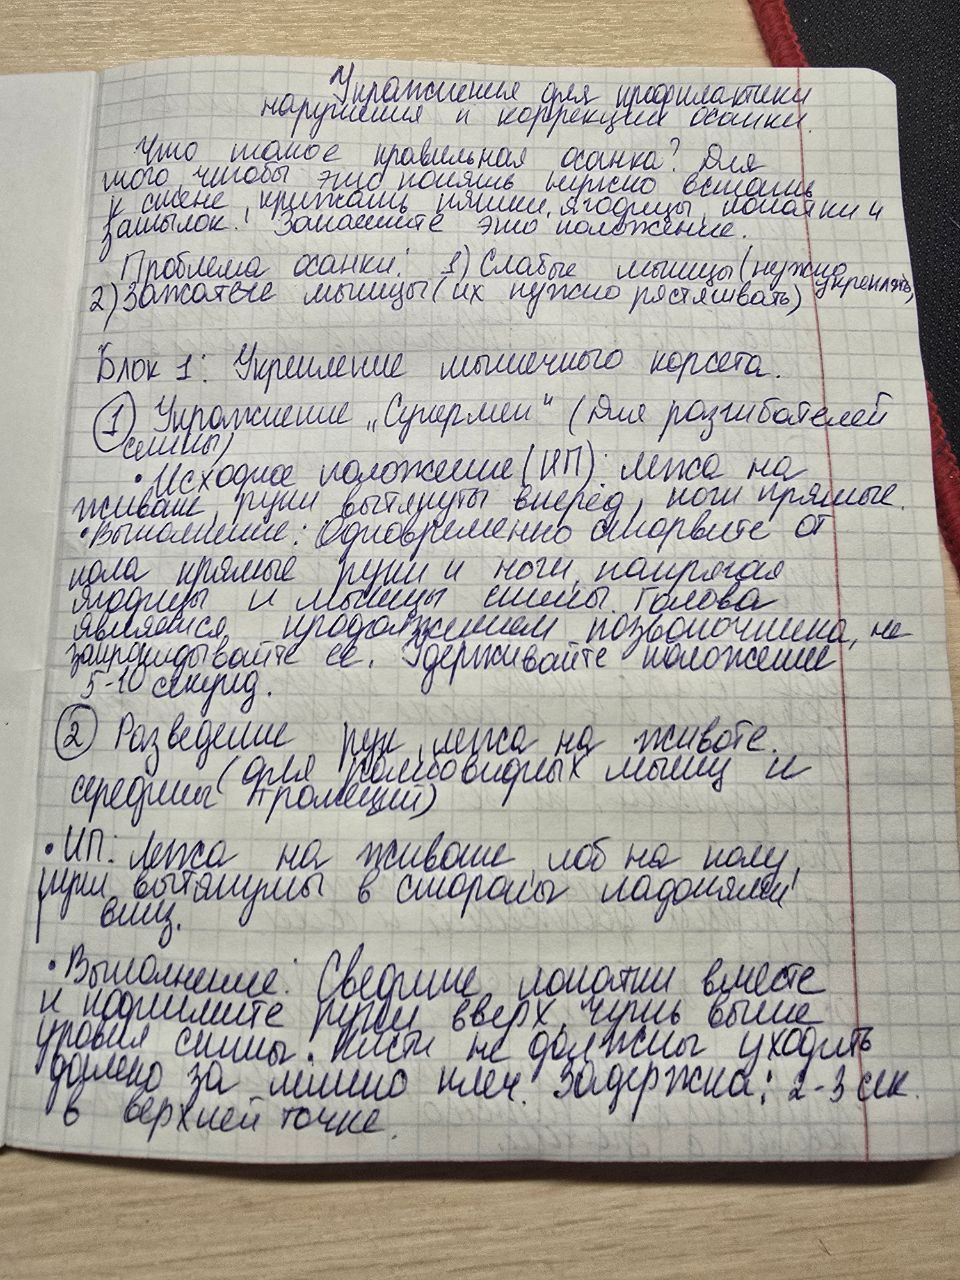 Упражнения для профилактики
нарушения и коррекции осанки.
Что такое правильная осанка? Для
того чтобы это понять нужно встать
к стене, прижать пятки, ягодицы, лопатки и
затылок. Запомните это положение.
Проблема осанки: 1) Слабые мышцы (нужно
укреплять)
2) Зажатые мышцы (их нужно рястягивать)
Блок 1: Укрепление мышечного корсета.
① Упражнение „Супермен" (Для разгибателей
спины)
• Исходное положение (ИП): лежа на
животе, руки вытянуты вперёд, ноги прямые.
• Выполнение: Одновременно оторвите от
пола прямые руки и ноги, напрягая
ягодицы и мышцы спины. Голова
является продолжением позвоночника, не
запрокидывайте её. Удерживайте положение
5-10 секунд.
② Разведение рук лежа на животе.
(для ромбовидных мышц и
середины трапеции)
• ИП: лежа на животе, лоб на полу,
руки вытянуты в стороны ладонями
вниз.
• Выполнение: Сведите лопатки вместе
и поднимите руки вверх, чуть выше
уровня спины. Кисти не должны уходить
далеко за линию плеч. Задержка: 2-3 сек.
в верхней точке.